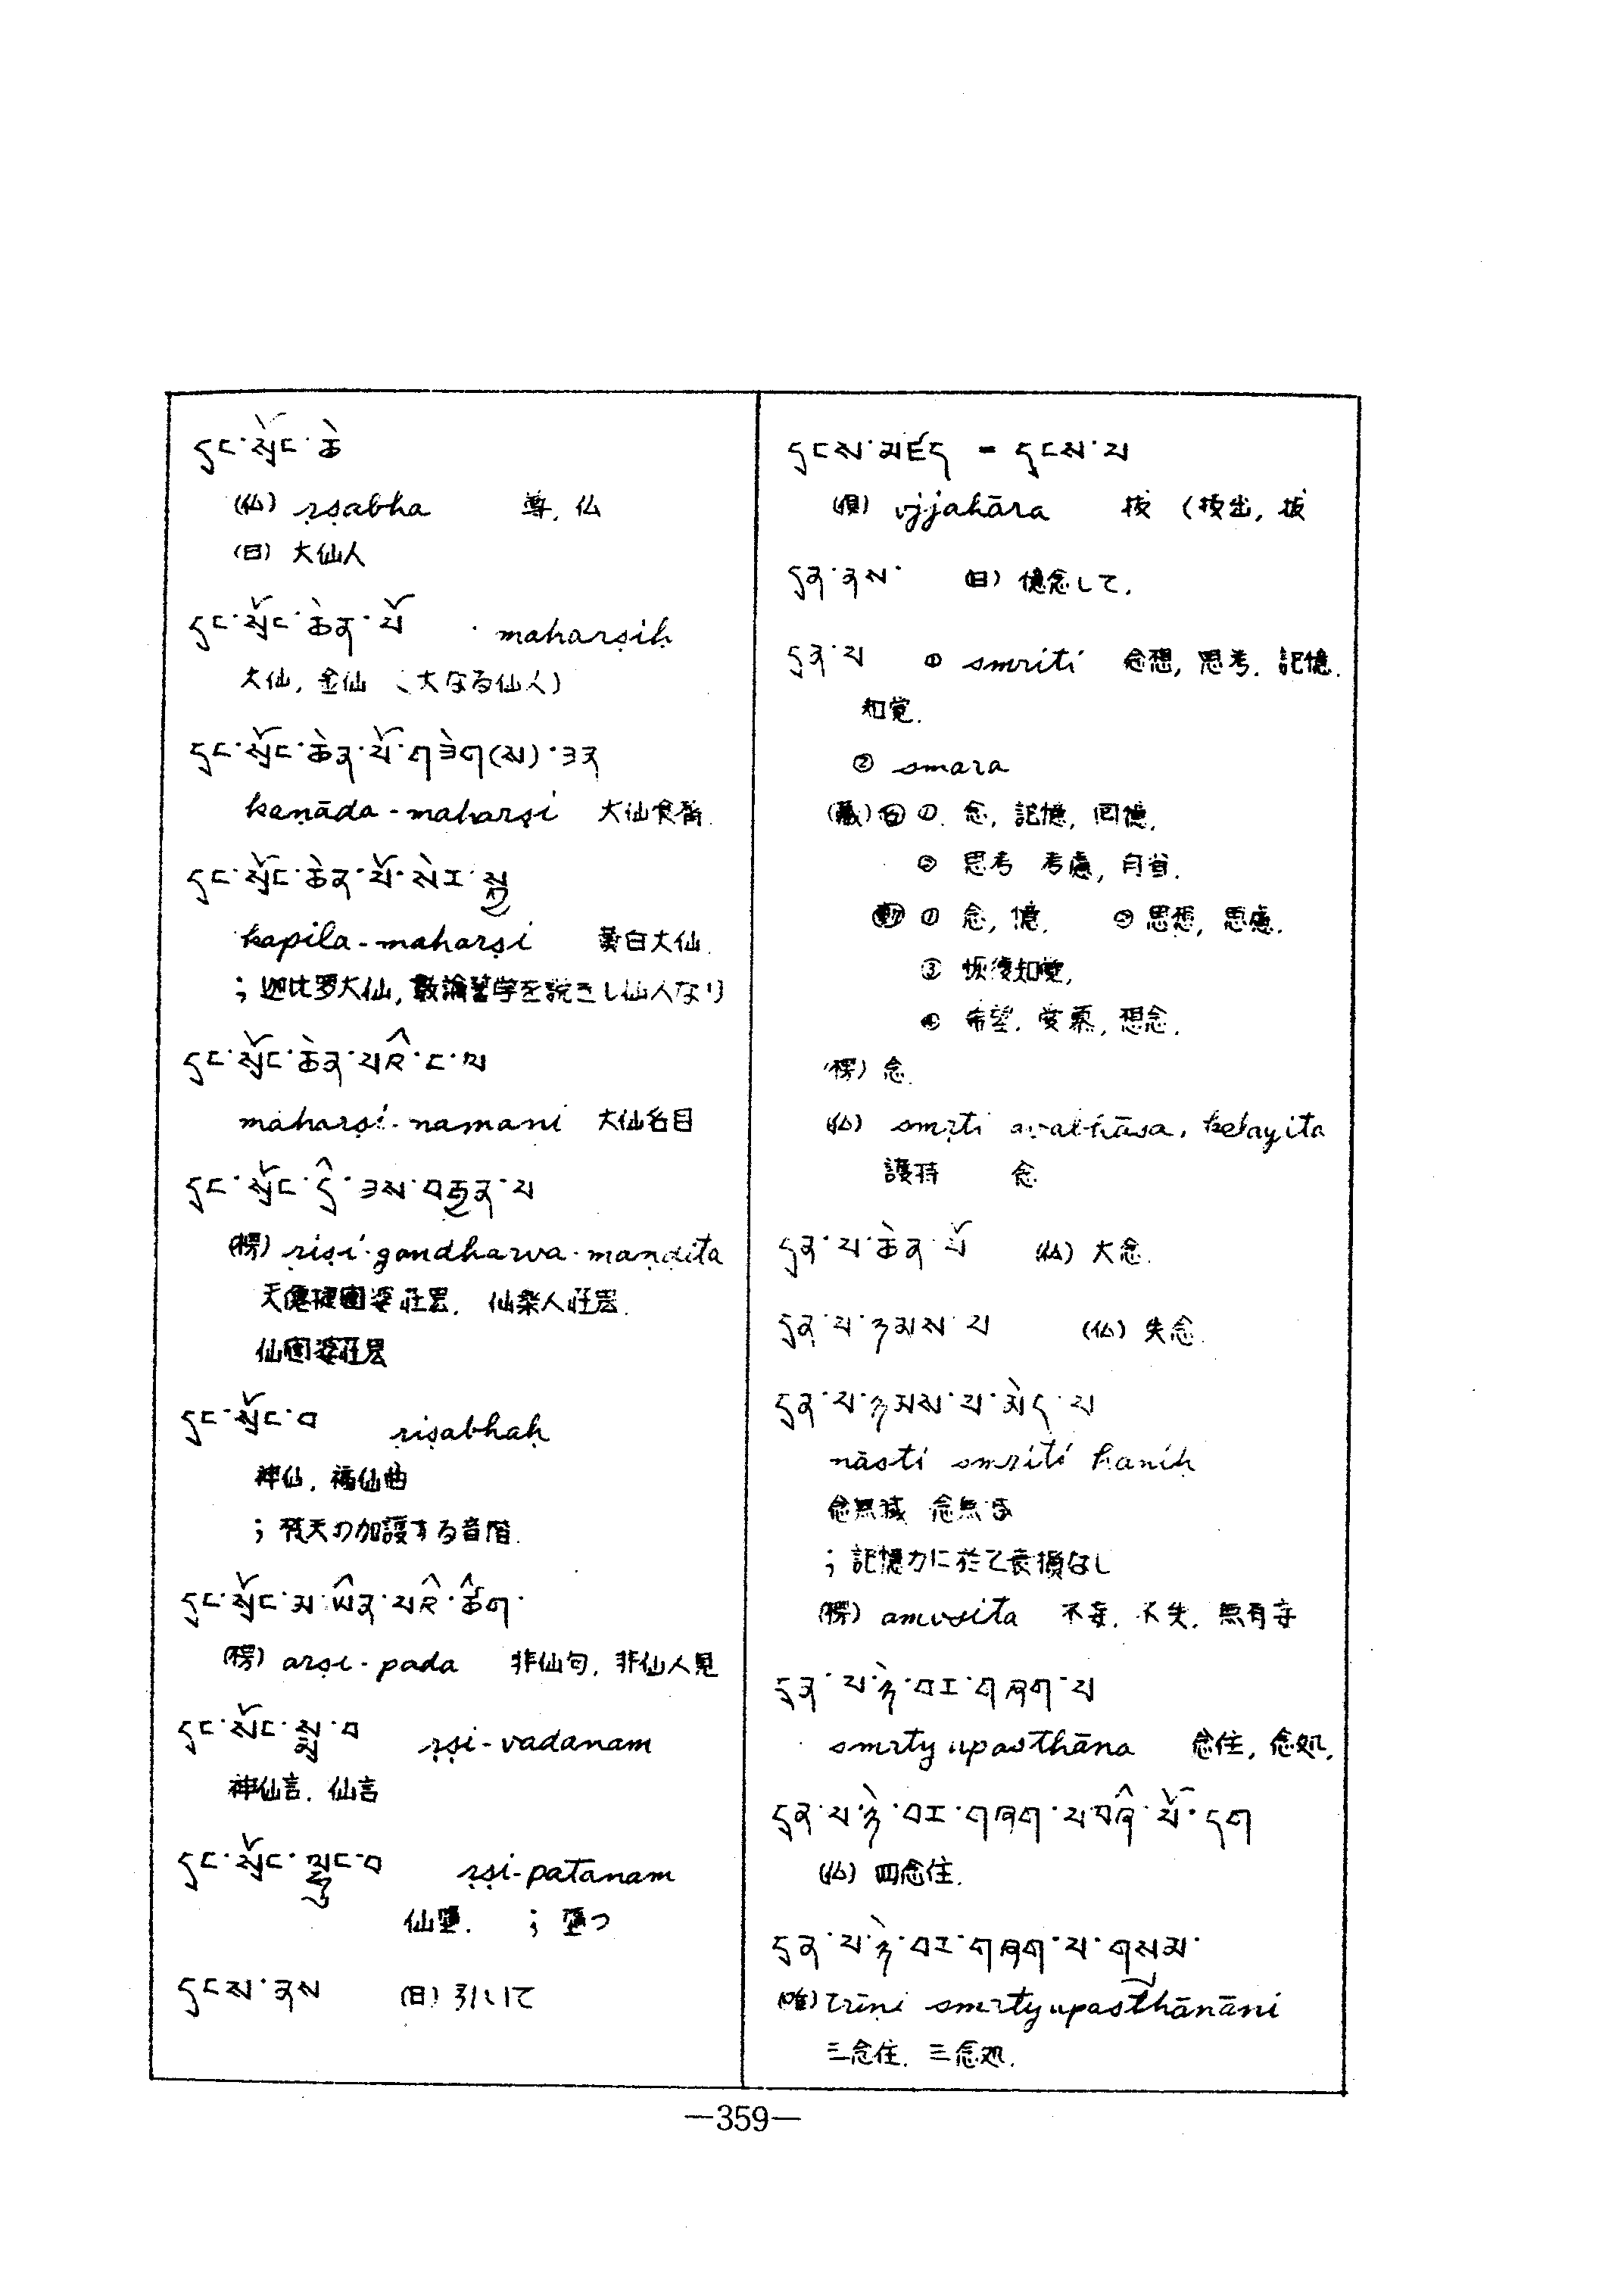 དྲང་སྲོང་ཆེ
(仏) ṛṣabha 尊, 仏
(日) 大仙人
དྲང་སྲོང་ཆེན་པོ maharṣiḥ
大仙, 金仙 (大なる仙人)
དྲང་སྲོང་ཆེན་པོ་གཟེག(ས)་ཟན
kaṇāda-maharṣi 大仙食齊.
དྲང་སྲོང་ཆེན་པོ་སེར་སྐྱ
kapila-maharṣi 黄白大仙.
; 迦比罗大仙, 数論哲学を説きし仙人なり
དྲང་སྲོང་ཆེན་པའི་ང་ལ
maharṣi-namani 大仙名目
དྲང་སྲོང་དྲི་ཟས་བརྒྱན་པ
(楞) ṛiṣi-gandharva-maṇḍita
仙楽人荘厳.
དྲང་སྲོང་བ ṛiṣabhaḥ
神仙, 福仙曲
; 梵天の加護する音階.
དྲང་སྲོང་མ་ཡིན་པའི་ཚིག་
(楞) arṣi-pada 非仙句, 非仙人見
དྲང་སྲོང་སྨྲ་བ ṛṣi-vadanam
神仙言. 仙言
དྲང་སྲོང་ལྷུང་བ ṛṣi-patanam
仙墮. ; 墮つ
དྲངས་ནས (日) 引いて
དྲངས་མཛད = དྲངས་པ
vjjahāra 抜 (抜出, 抜
དྲན་ནས་ (日) 憶念して.
དྲན་པ ① smriti 念想, 思考. 記憶.
知覚.
② smara
(蔵) 名 ① 念, 記憶, 回憶.
② 思考 考慮, 自省.
動 ① 念, 憶. ② 思想, 思慮.
③ 恢復知覚,
④ 希望. 愛慕, 想念.
(楞) 念.
(仏) smṛti avabhāsa, kelayita
護持 念
དྲན་པ་ཆེན་པོ (仏) 大念.
དྲན་པ་ཉམས་པ (仏) 失念.
དྲན་པ་ཉམས་པ་མེད་པ
nāsti smriti haniḥ
念無減 念無
; 記憶力に於て衰損なし
(楞) amuṣita 不忘. 不失. 無有忘
དྲན་པ་ཉེ་བར་གཞག་པ
smrty upasthāna 念住, 念処,
དྲན་པ་ཉེ་བར་གཞག་པ་བཞི་པོ་དག
(仏) 四念住.
དྲན་པ་ཉེ་བར་གཞག་པ་གསུམ་
(唯) trīṇi smrtyupasthānāni
三念住. 三念処.
—359—